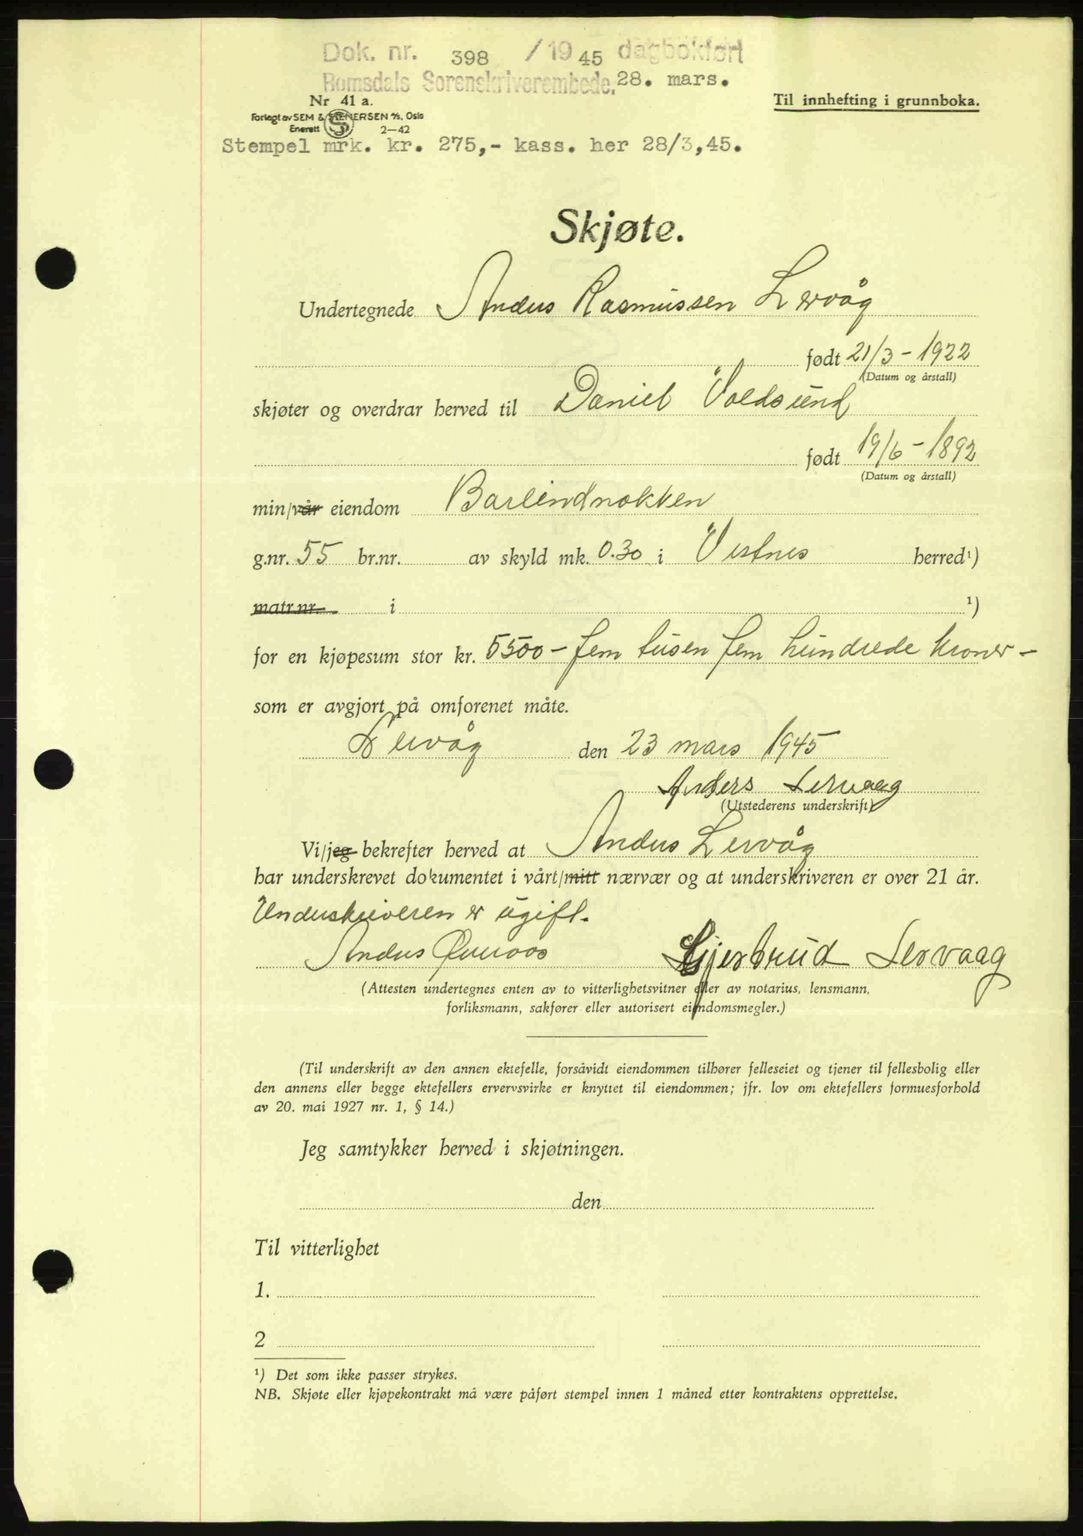 Dok. nr. 398 / 1945 dagbokført
Romsdals Sorenskriverembede, 28. mars.
Nr 41 a.
Til innhefting i grunnboka.
Forlagt av SEM & STENERSEN A/S, Oslo
Enerett S 2—42
Stempel mrk. kr. 275,- kass. her 28/3,45.
Skjøte.
Undertegnede Anders Rasmussen Lervåg
født 21/3 - 1922
(Datum og årstall)
skjøter og overdrar herved til Daniel Voldsund
født 19/6 - 1892
(Datum og årstall)
min/vår eiendom Barlindnokken
g.nr. 55 br.nr. av skyld mk. 0.30 i Vestnes herred¹)
matr.nr. i ¹)
for en kjøpesum stor kr. 5500 - fem tusen fem hundrede kroner -
som er avgjort på omforenet måte.
Lervåg den 23 mars 1945
Anders Lervaag
(Utstederens underskrift)
Vi/jeg bekrefter herved at Anders Lervåg
har underskrevet dokumentet i vårt/mitt nærvær og at underskriveren er over 21 år.
Underskriveren er ugift.
Anders Gjertrud Lervaag
(Attesten undertegnes enten av to vitterlighetsvitner eller av notarius, lensmann,
forliksmann, sakfører eller autorisert eiendomsmegler.)
(Til underskrift av den annen ektefelle, forsåvidt eiendommen tilhører felleseiet og tjener til fellesbolig eller
den annens eller begge ektefellers ervervsvirke er knyttet til eiendommen; jfr. lov om ektefellers formuesforhold
av 20. mai 1927 nr. 1, § 14.)
Jeg samtykker herved i skjøtningen.
den
Til vitterlighet
1.
2
¹) Det som ikke passer strykes.
NB. Skjøte eller kjøpekontrakt må være påført stempel innen 1 måned etter kontraktens opprettelse.